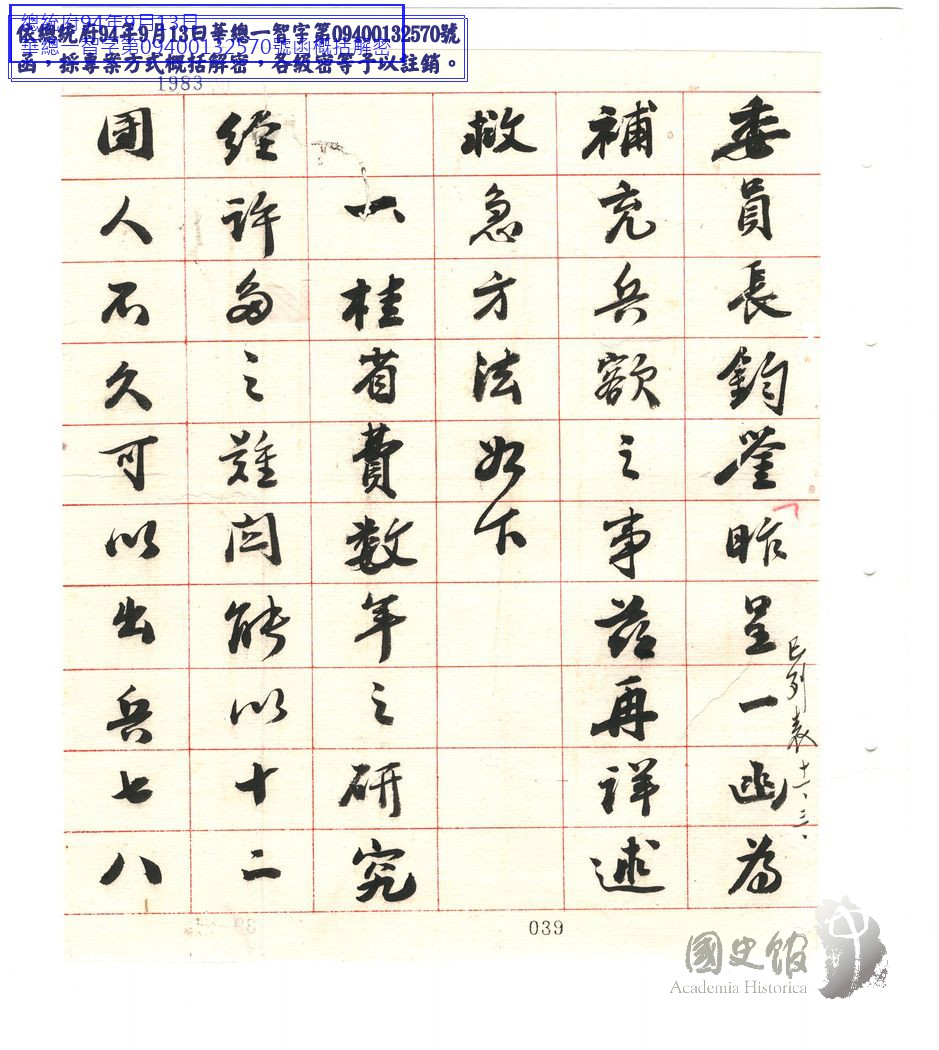 總統府94年9月13日
華總一智字第09400132570號函概括解密
依總統府94年9月13日華總一智字第09400132570號
函，採專案方式概括解密，各級密等予以註銷。
1983
委員長鈞鑒昨呈一函為
補充兵額之事茲再詳述
救急方法如下
一桂省費數年之研究
經許多之難関能以十二
团人不久可以出兵七八
已列表
039
國史館
Academia Historica